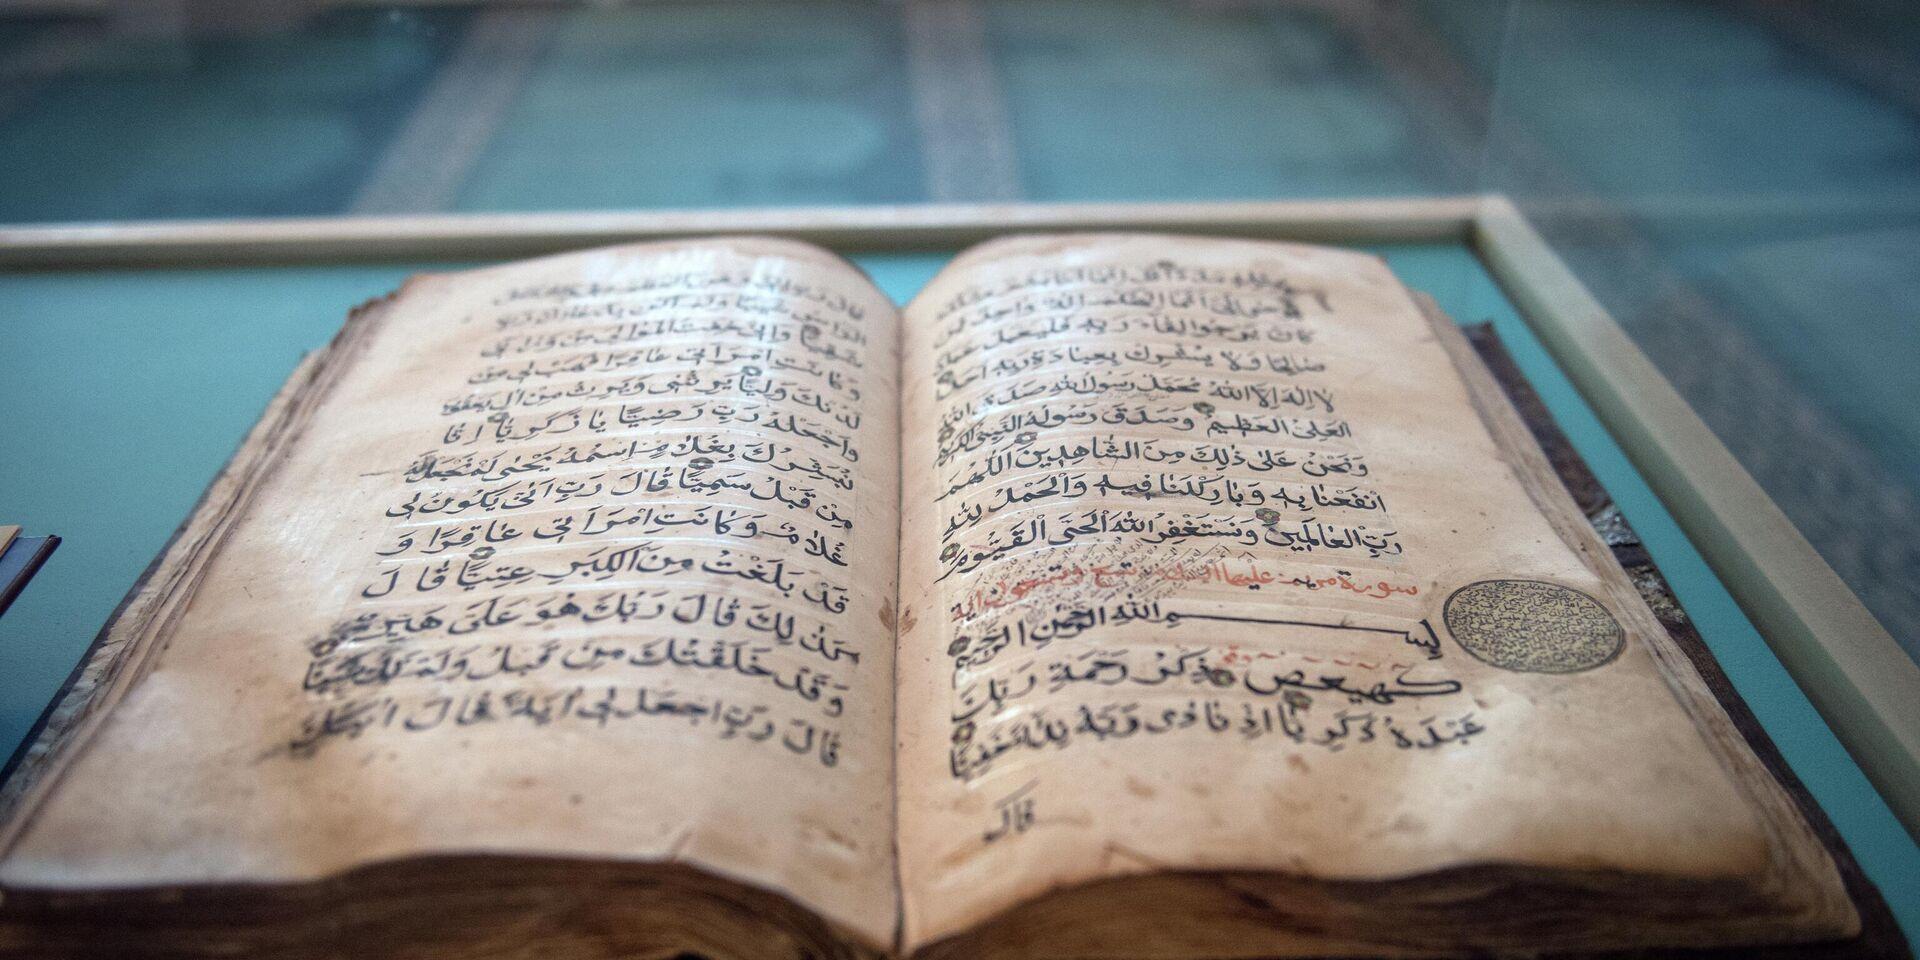 مثلكم يوحى الي انما الهكم اله واحد فمن
كان يرجوا لقاء ربه فليعمل عملا
صالحا ولا يشرك بعبادة ربه احدا
لا اله الا الله محمد رسول الله صدق الله
العلي العظيم وصدق رسوله النبي الكريم
ونحن على ذلك من الشاهدين اللهم
انفعنا به وبارك لنا فيه والحمد لله
رب العالمين ونستغفر الله الحي القيوم
سورة مريم عليها السلام وتسعون اية
بسم الله الرحمن الرحيم
كهيعص ذكر رحمة ربك
عبده زكريا اذ نادى ربه نداء خفيا
قال
قال رب اني وهن العظم مني واشتعل
الراس شيبا ولم اكن بدعائك رب
شقيا واني خفت الموالي من ورائي
وكانت امراتي عاقرا فهب لي من
لدنك وليا يرثني ويرث من ال يعقوب
واجعله رب رضيا يا زكريا انا
نبشرك بغلام اسمه يحيى لم نجعل له
من قبل سميا قال رب انى يكون لي
غلام وكانت امراتي عاقرا و
قد بلغت من الكبر عتيا قال
كذلك قال ربك هو علي هين
وقد خلقتك من قبل ولم تك شيئا
قال رب اجعل لي اية قال ايتك